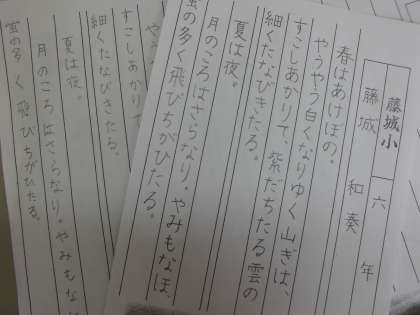 藤城小
六年
藤城 和奏
春はあけぼの。
やうやう白くなりゆく山ぎは、
すこしあかりて、紫だちたる雲の
細くたなびきたる。
夏は夜。
月のころはさらなり。やみもなほ、
蛍の多く飛びちがひたる。
すこしあかりて
細くたなびきたる。
夏は夜。
月のころはさらなり。やみもな
蛍の多く飛びちがひたる。